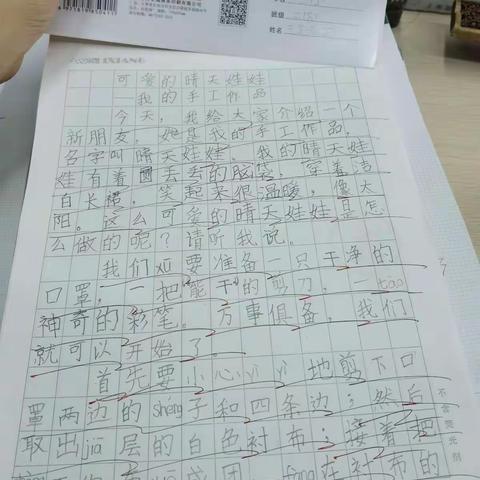 班级
姓名
可爱的晴天娃娃
我的手工作品
今天，我给大家介绍一个
新朋友，她是我的手工作品，
名字叫晴天娃娃。我的晴天娃
娃有着圆丢丢的脑袋，穿着洁
白长裙，笑起来很温暖，像太
阳。这么可爱的晴天娃娃是怎
么做的呢？请听我说。
我们要准备一只干净的
口罩，一把能干的剪刀，一tào
神奇的彩笔。万事俱备，我们
就可以开始了。
首先要小心yì yì地剪下口
罩两边的shéng子和四条边；然后
取出jiā层的白色衬布；接着把
成团，
在衬布的